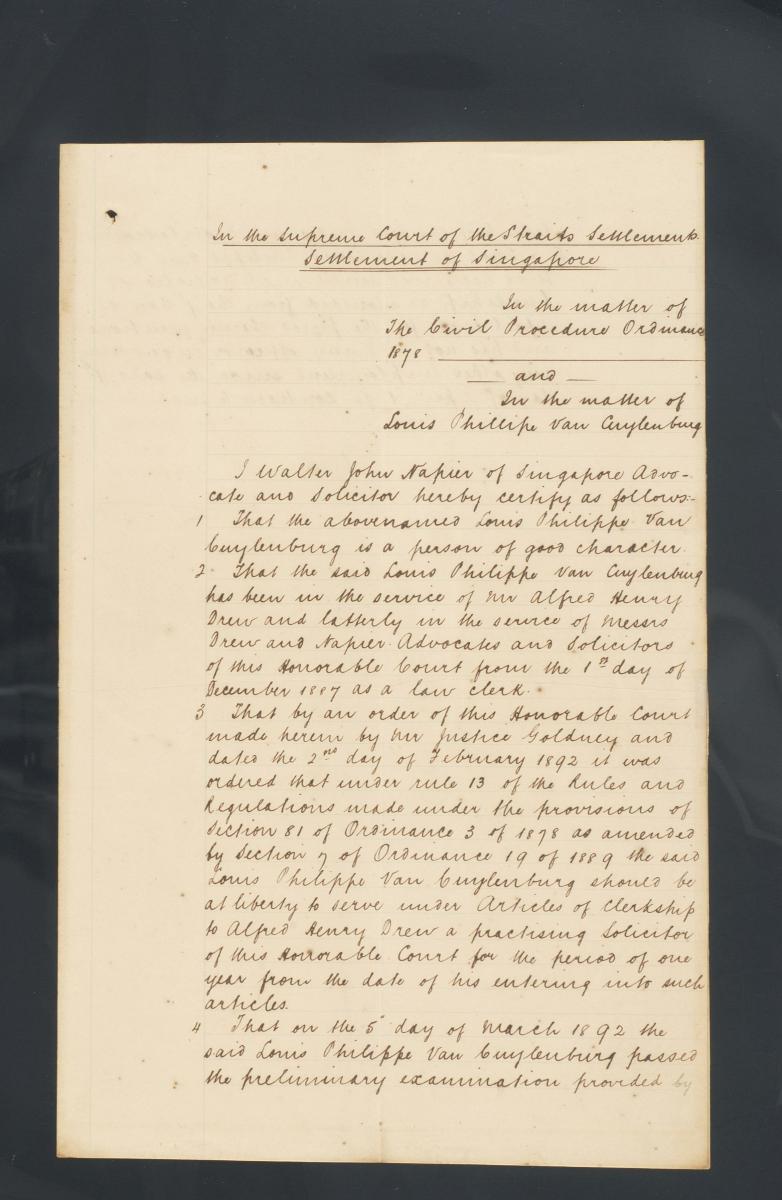 In the Supreme Court of the Straits Settlements.
Settlement of Singapore
In the matter of
The Civil Procedure Ordinance
1878
— and —
In the matter of
Louis Phillipe Van Cuylenburg
I Walter John Napier of Singapore Advo-
cate and Solicitor hereby certify as follows:-
1 That the abovenamed Louis Philippe Van
Cuylenburg is a person of good character.
2 That the said Louis Philippe Van Cuylenburg
has been in the service of Mr Alfred Henry
Drew and latterly in the service of Messrs
Drew and Napier Advocates and Solicitors
of this Honorable Court from the 1st day of
December 1887 as a law clerk.
3 That by an order of this Honorable Court
made herein by Mr Justice Goldney and
dated the 2nd day of February 1892 it was
ordered that under rule 13 of the Rules and
Regulations made under the provisions of
Section 81 of Ordinance 3 of 1878 as amended
by Section 7 of Ordinance 19 of 1889 the said
Louis Philippe Van Cuylenburg should be
at liberty to serve under Articles of Clerkship
to Alfred Henry Drew a practising Solicitor
of this Honorable Court for the period of one
year from the date of his entering into such
articles.
4 That on the 5 day of March 1892 the
said Louis Philippe Van Cuylenburg passed
the preliminary examination provided by